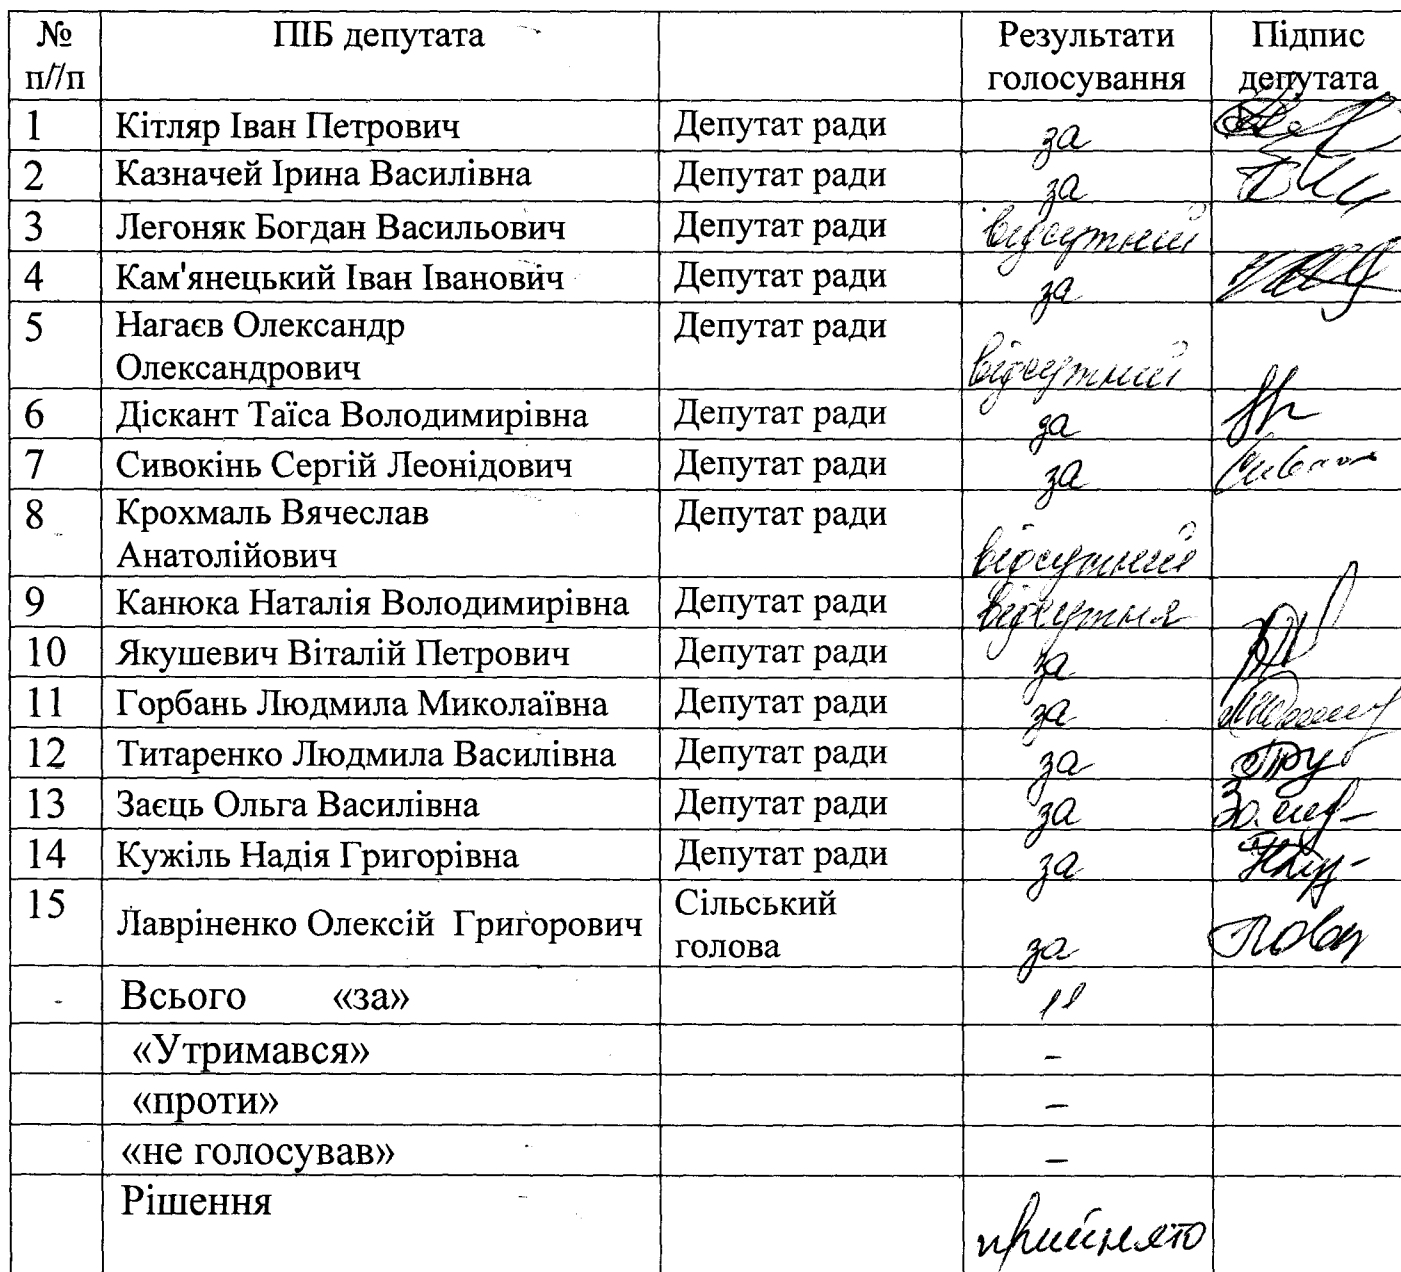 № п//п ПІБ депутата Результати голосування Підпис депутата
1 Кітляр Іван Петрович Депутат ради за
2 Казначей Ірина Василівна Депутат ради за
3 Легоняк Богдан Васильович Депутат ради відсутний
4 Кам'янецький Іван Іванович Депутат ради за
5 Нагаєв Олександр Олександрович Депутат ради відсутний
6 Діскант Таїса Володимирівна Депутат ради за
7 Сивокінь Сергій Леонідович Депутат ради за
8 Крохмаль Вячеслав Анатолійович Депутат ради відсутний
9 Канюка Наталія Володимирівна Депутат ради відсутня
10 Якушевич Віталій Петрович Депутат ради за
11 Горбань Людмила Миколаївна Депутат ради за
12 Титаренко Людмила Василівна Депутат ради за
13 Заєць Ольга Василівна Депутат ради за
14 Кужіль Надія Григорівна Депутат ради за
15 Лавріненко Олексій Григорович Сільський голова за
Всього «за» 11
«Утримався» –
«проти» –
«не голосував» –
Рішення прийнято